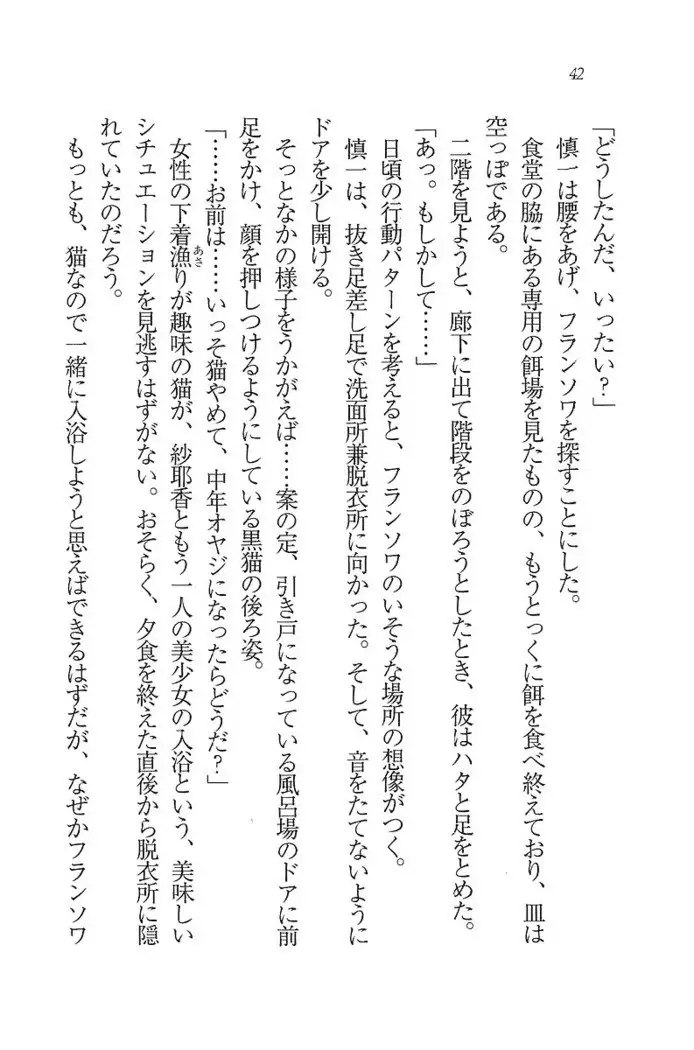 42
「どうしたんだ、いったい？」
慎一は腰をあげ、フランソワを探すことにした。
食堂の脇にある専用の餌場を見たものの、もうとっくに餌を食べ終えており、皿は
空っぽである。
二階を見ようと、廊下に出て階段をのぼろうとしたとき、彼はハタと足をとめた。
「あっ。もしかして……」
日頃の行動パターンを考えると、フランソワのいそうな場所の想像がつく。
慎一は、抜き足差し足で洗面所兼脱衣所に向かった。そして、音をたてないように
ドアを少し開ける。
そっとなかの様子をうかがえば……案の定、引き戸になっている風呂場のドアに前
足をかけ、顔を押しつけるようにしている黒猫の後ろ姿。
「……お前は……いっそ猫やめて、中年オヤジになったらどうだ？」
女性の下着漁りが趣味の猫が、紗耶香ともう一人の美少女の入浴という、美味しい
シチュエーションを見逃すはずがない。おそらく、夕食を終えた直後から脱衣所に隠
れていたのだろう。
もっとも、猫なので一緒に入浴しようと思えばできるはずだが、なぜかフランソワ